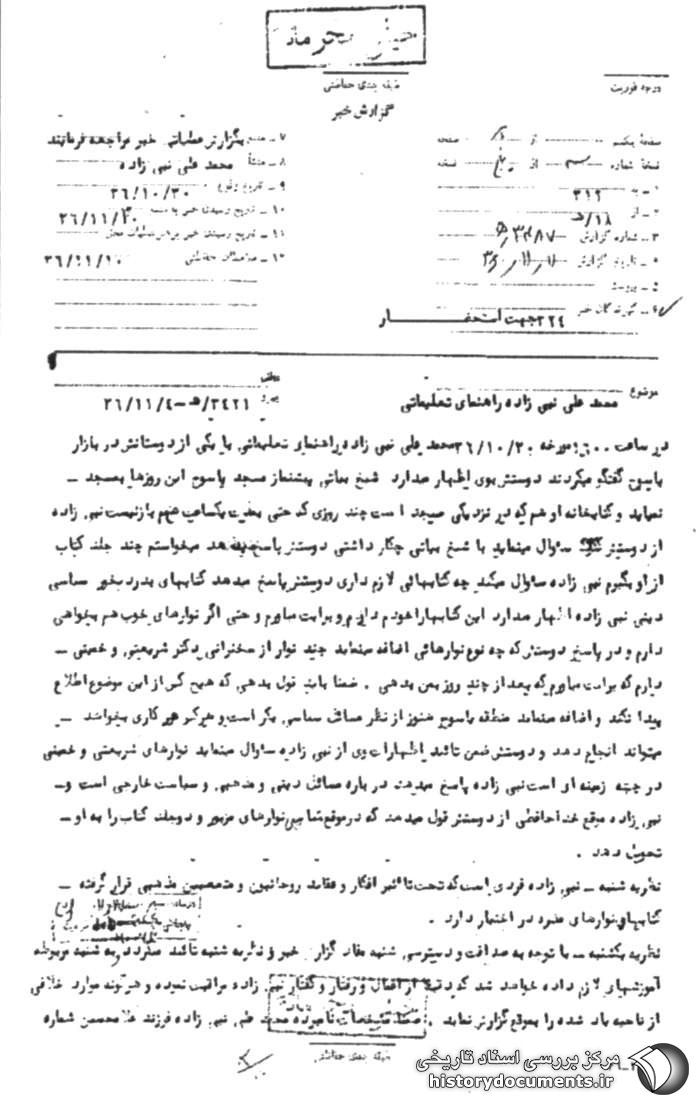 خیلی محرمانه
طبقه بندی حفاظتی
درجه فوریت
گزارش خبر
صفحهٔ یکم از صفحه
نسخهٔ شماره از نسخه
۱ ـ به ۳۱۲
۲ ـ از ۱۸/ﻫ
۳ ـ شماره گزارش
۴ ـ تاریخ گزارش
۵ ـ پیوست
۶ ـ گیرندگان خبر
۳۲۴ جهت استحضار
۷ ـ منبع بگزارش عملیاتی خبر مراجعه فرمائید
۸ ـ منشأ محمد علی نبی زاده
۹ ـ تاریخ وقوع ۳۶/۱۰/۳۰
۱۰ ـ تاریخ رسیدن خبر به منبع
۱۱ ـ تاریخ رسیدن خبر برهبر عملیات محل
۱۲ ـ ملاحظات حفاظتی
موضوع محمد علی نبی زاده راهنمای تعلیماتی
۳۴۲۱/ﻫ ـ ۳۶/۱۱/۴
در ساعت ۱۶۰۰ مورخه ۳۶/۱۰/۳۰ محمد علی نبی زاده راهنمای تعلیماتی با یکی از دوستانش در بازار
یاسوج گفتگو میکردند دوستش بوی اظهار میدارد شیخ بهائی پیشنماز مسجد یاسوج این روزها بمسجد ـ
نمیاید و کتابخانه او هم که در نزدیکی مسجد است چند روزی که حتی بمدت یکساعت هم باز نیست نبی زاده
از دوستش سئوال مینماید با شیخ بهائی چکار داشتی دوستش پاسخ میدهد میخواستم چند جلد کتاب
از او بگیرم نبی زاده سئوال میکند چه کتابهائی لازم داری دوستش پاسخ میدهد کتابهای بدرد بخور سیاسی
دینی نبی زاده اظهار میدارد این کتابها را خودم دارم و برایت میاورم و حتی اگر نوارهای خوب هم بخواهی
دارم و در پاسخ دوستش که چه نوع نوارهائی اضافه مینماید چند نوار از سخنرانی دکتر شریعتی و خمینی ـ
دارم که برایت میاورم که بعد از چند روز بمن بدهی . ضمناً باید قول بدهی که هیچ کس از این موضوع اطلاع
پیدا نکند و اضافه مینماید منطقه یاسوج هنوز از نظر مسائل سیاسی بکر است و هر کس هر کاری بخواهد ـ
میتواند انجام دهد و دوستش ضمن تائید اظهارات وی از نبی زاده سئوال مینماید نوارهای شریعتی و خمینی
در چه زمینه ای است نبی زاده پاسخ میدهد در باره مسائل دینی و مذهبی و سیاست خارجی است و ـ
نبی زاده موقع خداحافظی از دوستش قول میدهد که در موقع مناسب نوارهای مزبور و دو جلد کتاب را به او ـ
تحویل دهد .
نظریه شنبه ـ نبی زاده فردی است که تحت تاثیر افکار و عقاید روحانیون و متعصبین مذهبی قرار گرفته ـ
کتابها و نوارهای مضره در اختیار دارد .
نظریه یکشنبه ـ با توجه به صداقت و دسترسی شنبه مفاد گزارش خبر و نظریه شنبه تائید میگردد به شنبه مربوطه
آموزشهای لازم داده خواهد شد که دقیقاً از اعمال و رفتار و گفتار نبی زاده مراقبت نموده و هرگونه موارد خلافی
از ناحیه یاد شده را بموقع گزارش نماید . ضمناً مشخصات نامبرده محمد علی نبی زاده فرزند غلامحسین شماره
طبقه بندی حفاظتی
مرکز بررسی اسناد تاریخی
historydocuments.ir